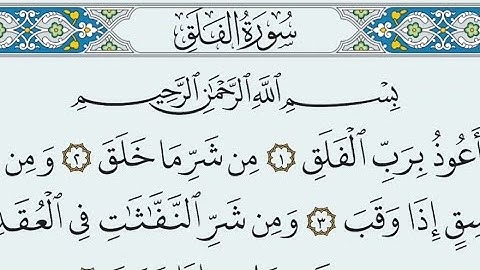 سُورَةُ الْفَلَقِ
بِسْمِ اللَّهِ الرَّحْمَٰنِ الرَّحِيمِ
أَعُوذُ بِرَبِّ الْفَلَقِ ١ مِن شَرِّ مَا خَلَقَ ٢ وَمِن
سِقٍ إِذَا وَقَبَ ٣ وَمِن شَرِّ النَّفَّاثَاتِ فِي الْعُقَدِ